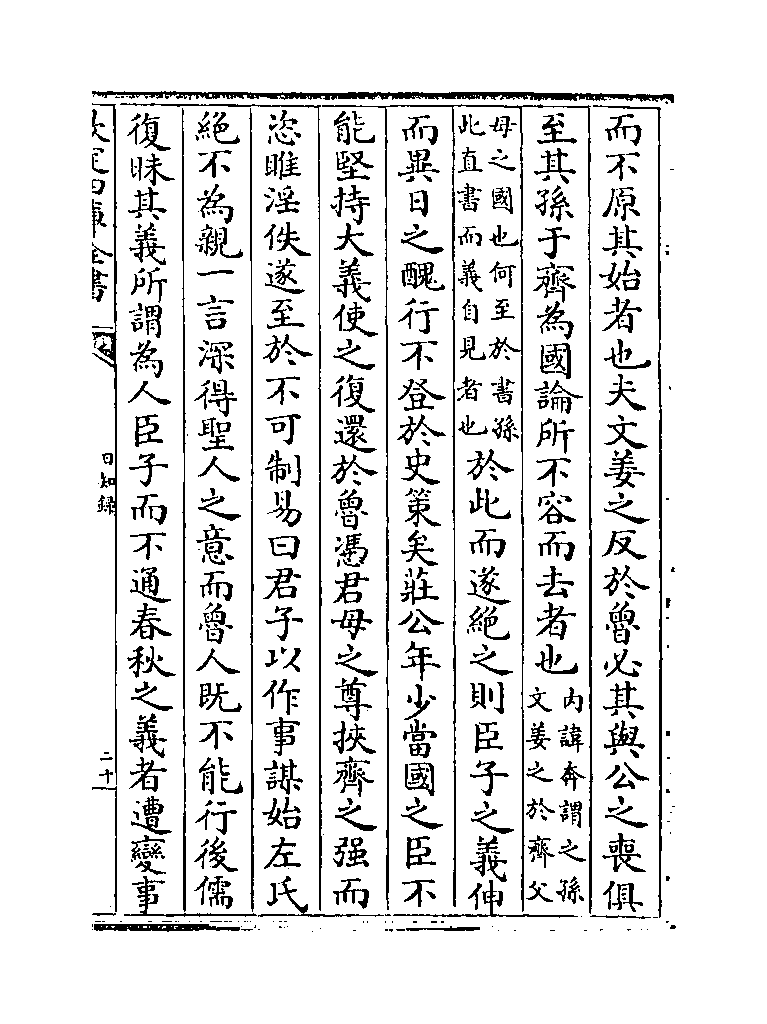 而不原其始者也夫文姜之反於魯必其與公之喪俱
至其孫于齊為國論所不容而去者也内諱奔謂之孫文姜之於齊父
母之國也何至於書孫此直書而義自見者也於此而遂絶之則臣子之義伸
而異日之醜行不登於史策矣莊公年少當國之臣不
能堅持大義使之復還於魯憑君母之尊挾齊之强而
恣睢淫佚遂至於不可制易曰君子以作事謀始左氏
絶不為親一言深得聖人之意而魯人既不能行後儒
復昧其義所謂為人臣子而不通春秋之義者遭變事
欽定四庫全書
日知錄
二十